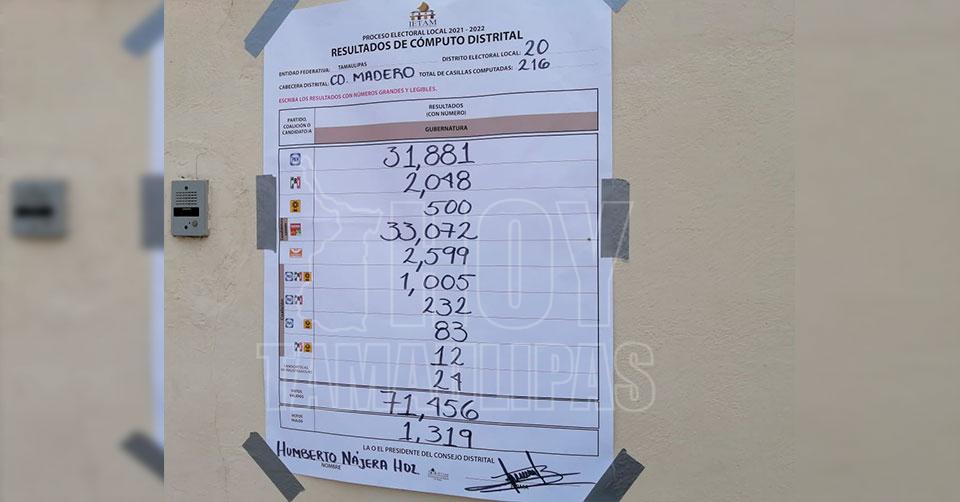 IETAM
PROCESO ELECTORAL LOCAL 2021 - 2022
RESULTADOS DE CÓMPUTO DISTRITAL
ENTIDAD FEDERATIVA: TAMAULIPAS DISTRITO ELECTORAL LOCAL: 20
CABECERA DISTRITAL: CD. MADERO TOTAL DE CASILLAS COMPUTADAS: 216
ESCRIBA LOS RESULTADOS CON NÚMEROS GRANDES Y LEGIBLES.
PARTIDO, COALICIÓN O CANDIDATO/A
RESULTADOS
(CON NÚMERO)
GUBERNATURA
PAN 31,881
2,048
500
33,072
2,599
1,005
232
83
12
24
VOTOS VÁLIDOS 71,456
VOTOS NULOS 1,319
LA O EL PRESIDENTE DEL CONSEJO DISTRITAL
HUMBERTO NÁJERA HDZ
NOMBRE
HOY
TAMAULIPAS